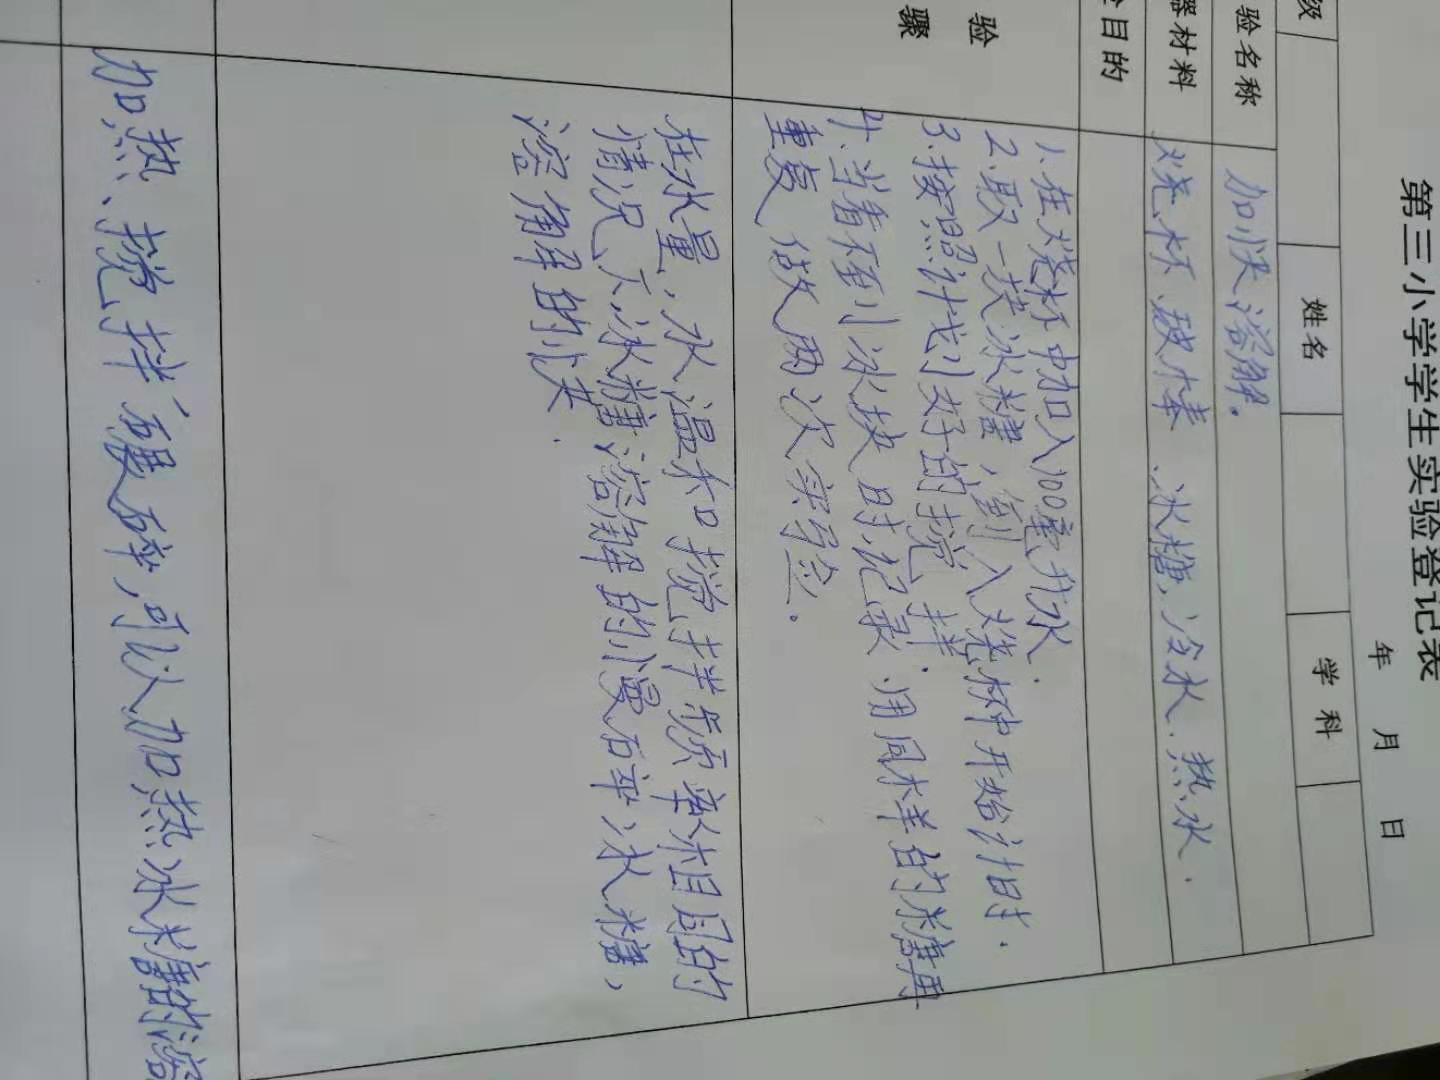 第三小学学生实验登记表
年 月 日
级 姓名 学科
验名称 加快溶解。
器材料 烧杯 玻棒 冰糖, 冷水、热水.
目的
验
骤
1.在烧杯中加入100毫升水.
2.取一块冰糖,倒入烧杯中开始计时.
3.按照计划好的搅拌.
4.当看不到冰块时记录.用同样的糖再
重复做两次实验.
在水量、水温和搅拌频率相同的
情况下冰糖溶解的慢石卒冰糖,
溶解的快.
加热、搅拌、碾碎,可以加热冰糖的溶